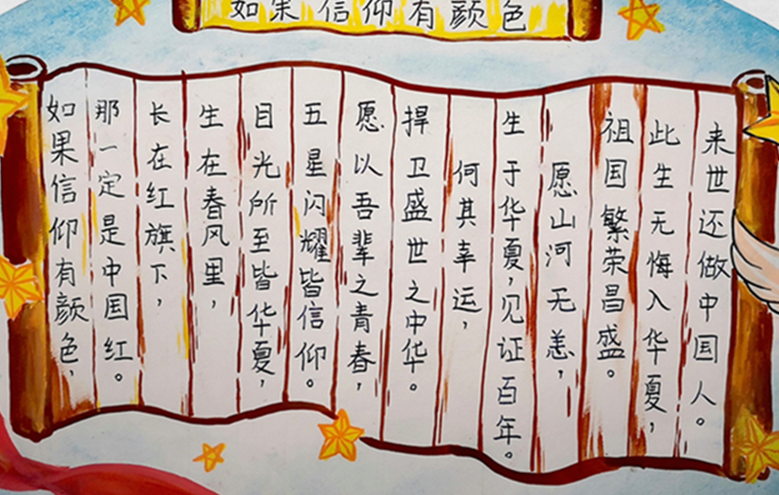 如果信仰有颜色
如果信仰有颜色，
那一定是中国红。
长在红旗下，
生在春风里，
目光所至皆华夏，
五星闪耀皆信仰。
愿以吾辈之青春，
捍卫盛世之中华。
何其幸运，
生于华夏，见证百年。
愿山河无恙，
祖国繁荣昌盛。
此生无悔入华夏，
来世还做中国人。